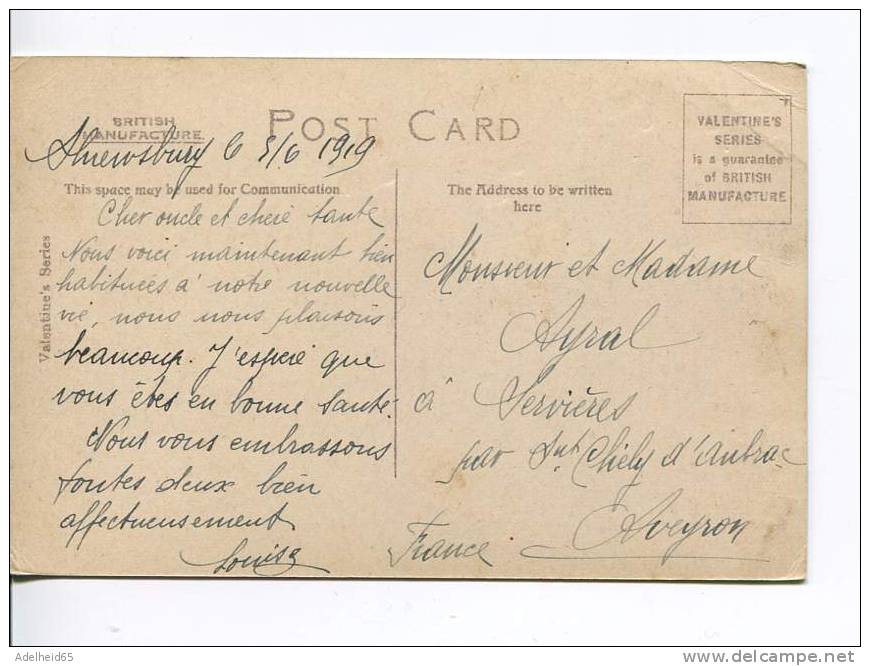 BRITISH
MANUFACTURE
POST CARD
VALENTINE'S
SERIES
is a guarantee
of BRITISH
MANUFACTURE
Shrewsbury 6 5/6 1919
This space may be used for Communication
The Address to be written
here
Valentine's Series
Cher oncle et chère tante
Nous voici maintenant bien
habituées à notre nouvelle
vie, nous nous plaisons
beaucoup. J'espère que
vous êtes en bonne santé.
Nous vous embrassons
toutes deux bien
affectueusement
Louise
Monsieur et Madame
Ayral
à Servières
par Snt Chély d'Aubrac
Aveyron
France
Adelheid65
www.delcampe.net